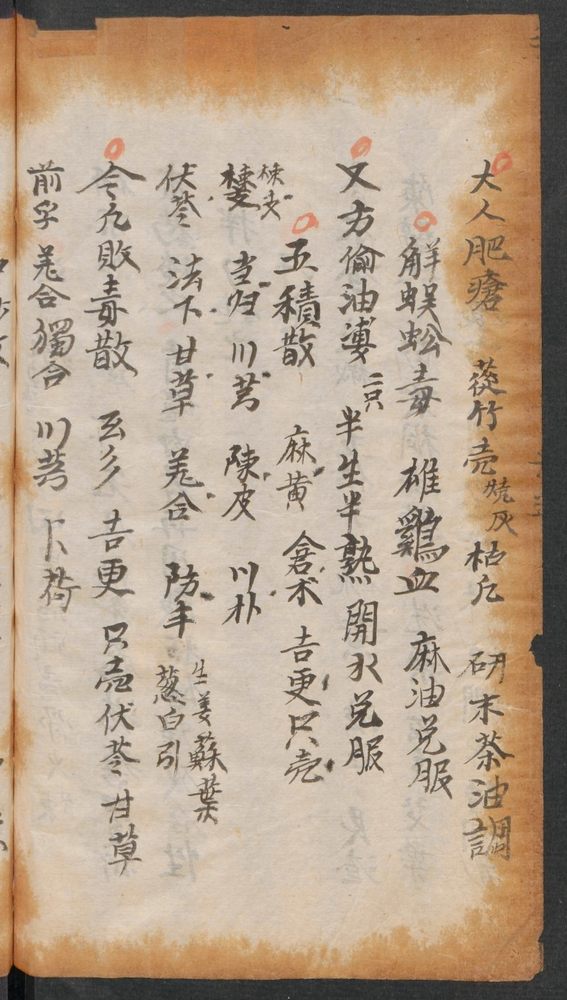 大人肥瘡 蓯竹壳燒灰 枯凡 研末茶油調
解蜈蚣毒 雄鷄血 麻油兑服
又方偷油婆二只 半生半熟開水兑服
五積散 麻黄 倉术 吉更 只壳
当归 川芎 陳皮 川朴
伏苓 法下 甘草 羌合 防丰 生姜蘇葉葱白引
令凡敗毒散 吉更 只壳伏苓甘草
前孚 羌合獨合 川芎 卜荷